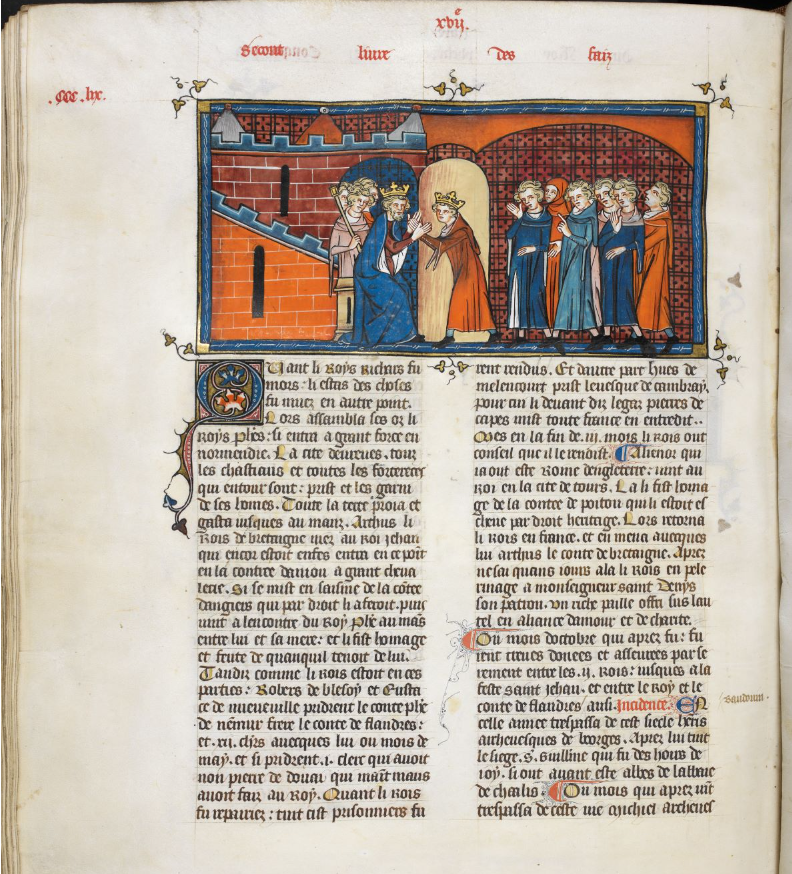 xvij
e
Secont liure des faiz
.ccc.lix.
Quant li Roys Richars fu
mors : li estas des choses
fu muez en autre point.
Lors assambla ses oz li
Roys phes : si entra a grant force en
normendie. La cite deureues. tour
les chastiaus et toutes les forterecez
qui entour sont : prist et les garni
de ses homes. Toute la terre proia et
gasta iusques au manz. Arthus li
Rois de bretaigne niez au roi iehan
qui encor estoit enfes entra en ce point
en la contree daniou a grant cheua
lerie. Si se mist en saisine de la cotee
dangiers qui par droit li aferoit. puis
uint a lencontre du Roy phe au mas
entre lui et sa mere : et li fist homage
et feute de quanquil tenoit de lui.
Tandiz comme li Rois estoit en ces
parties : Robers de blesoy et Eusta
ce de nueuuille pridrent le conte phe
de nemur frere le conte de flandres :
et .xii. chrs auecques lui ou mois de
may. et si pridrent .i. clerc qui auoit
non pierre de douai qui maint maus
auoit faiz au Roy. Quant li Rois
fu repairiez : tuit cist prisonniers fu
rent rendus. Et dautre part hues de
melencourt prist leuesque de cambray.
pour cui li deuant diz legaz pierres de
capes mist toute france en entredit.
Mes en la fin de .iii. mois li Rois out
conseil que il le rendist. Alienor qui
ia out este Roine dengleterre : uint au
Roi en la cite de tours. La li fist homa
ge de la contee de poitou qui li estoit es
cheue par droit heritage. Lors retorna
li Rois en france. et en mena auecques
lui arthus le conte de bretaigne. Aprez
ne sai quans iours ala li Rois en pele
rinage a monseigneur saint Denys
son patron. vn riche paille offri sus lau
tel en aliance damour et de charite.
Ou mois doctobre qui aprez fu : fu
rent trieues donees et asseurees par se
rement entre les .ij. Rois : iusques a la
feste saint iehan. et entre le Roy et le
conte de flandres ausi. Incidence. En
celle annee trespassa de cest siecle henris
archeuesques de boorges. Aprez lui tint
le siege .S. Guillme qui fu des hours de
ioy. si out auant este abbes de labbaie
de chaalis. Ou mois qui aprez uint
trespassa de ceste uie michiel archeues